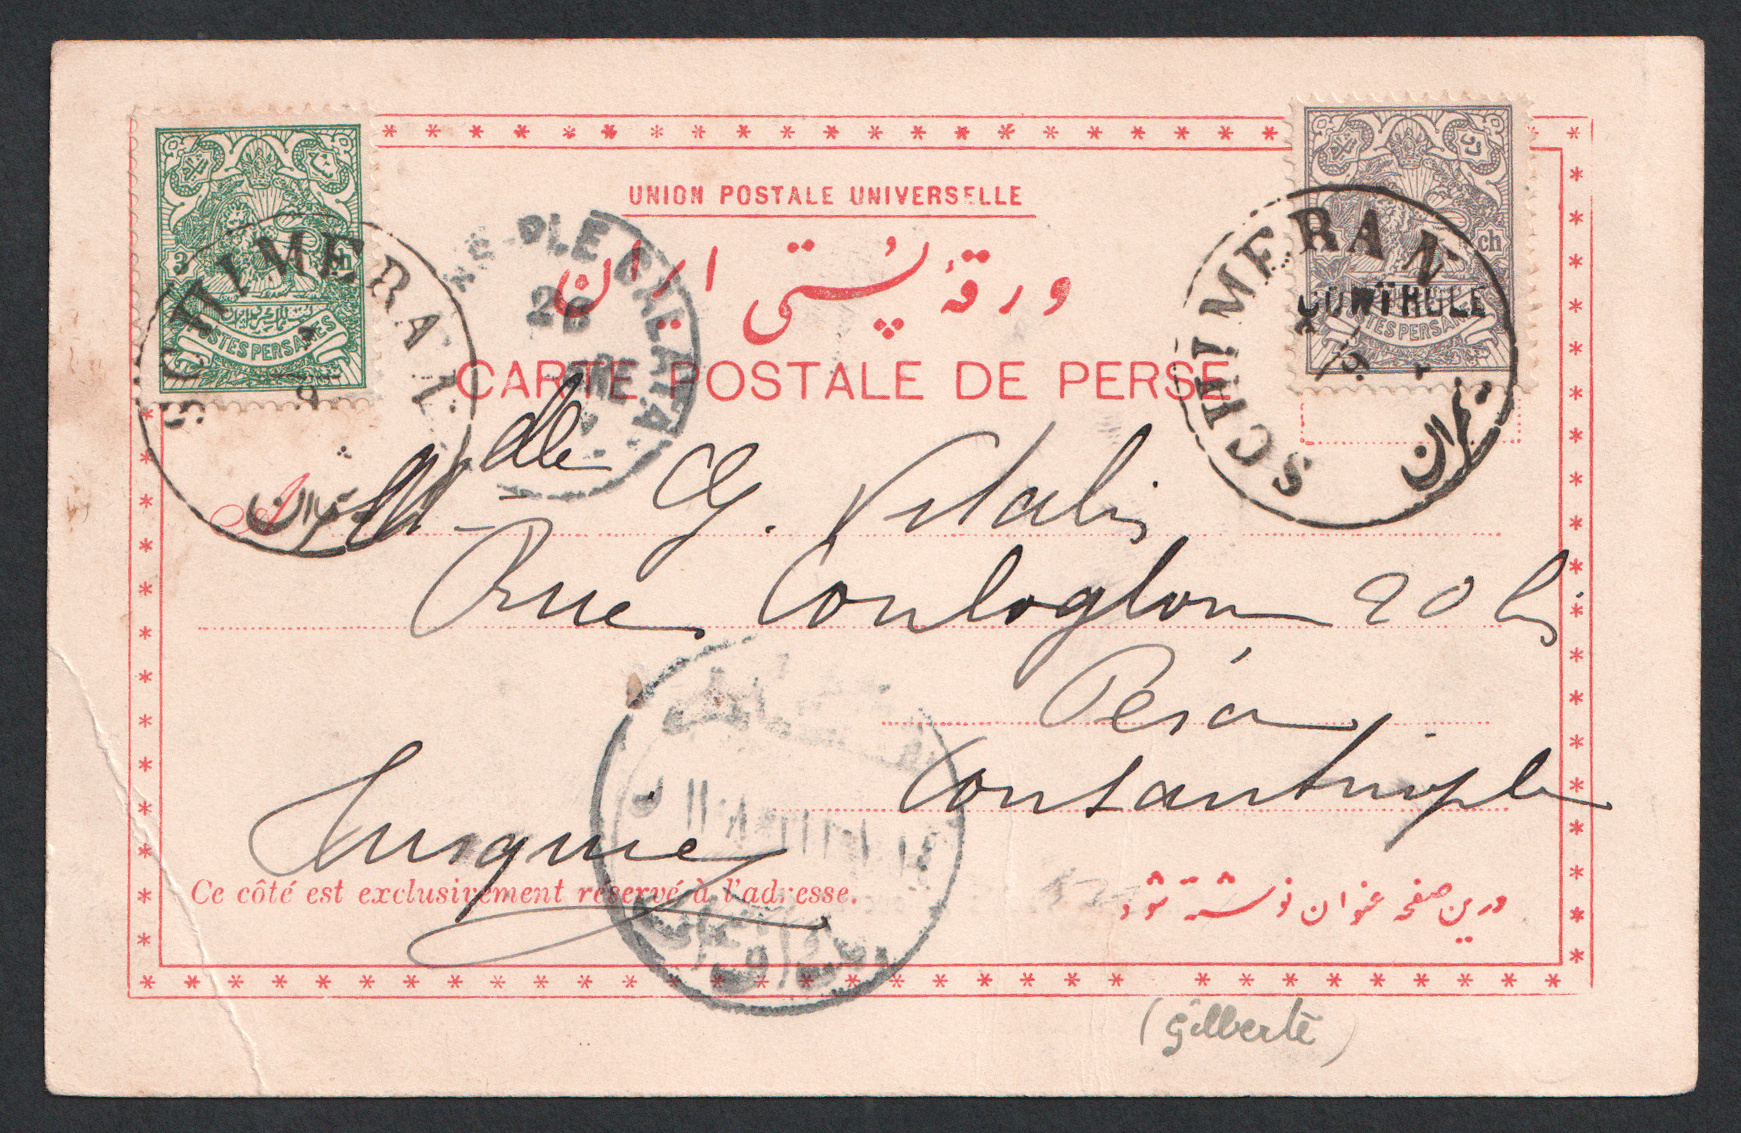 UNION POSTALE UNIVERSELLE
ورقهٔ پستی ایران
CARTE POSTALE DE PERSE
3 ch
POSTES PERSANES
SCHIMERAN
شمیران
ch
CONTROLE
POSTES PERSANES
SCHIMERAN
شمیران
PLE GALATA
26
A Mdlle G. Vitalis
Rue Couloglou 20 bis
Péra
Constantinople
Turquie
Ce côté est exclusivement réservé à l'adresse.
درین صفحه عنوان نوشته شود
(Gilberte)